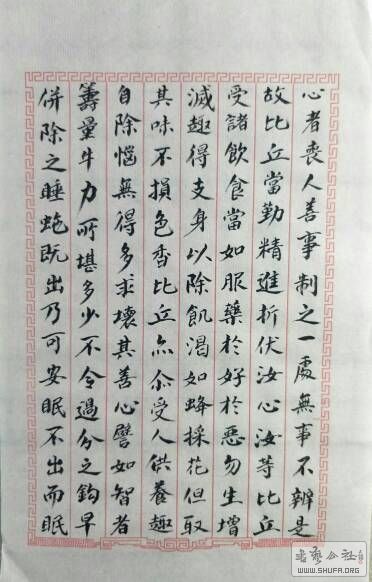 心者喪人善事制之一處無事不辨是
故比丘當勤精進折伏汝心汝等比丘
受諸飲食當如服藥於好於惡勿生增
減趣得支身以除飢渴如蜂採花但取
其味不損色香比丘亦尒受人供養趣
自除惱無得多求壞其善心譬如智者
籌量牛力所堪多少不令過分之鈎早
併除之睡蛇既出乃可安眠不出而眠
书艺公社
WWW.SHUFA.ORG